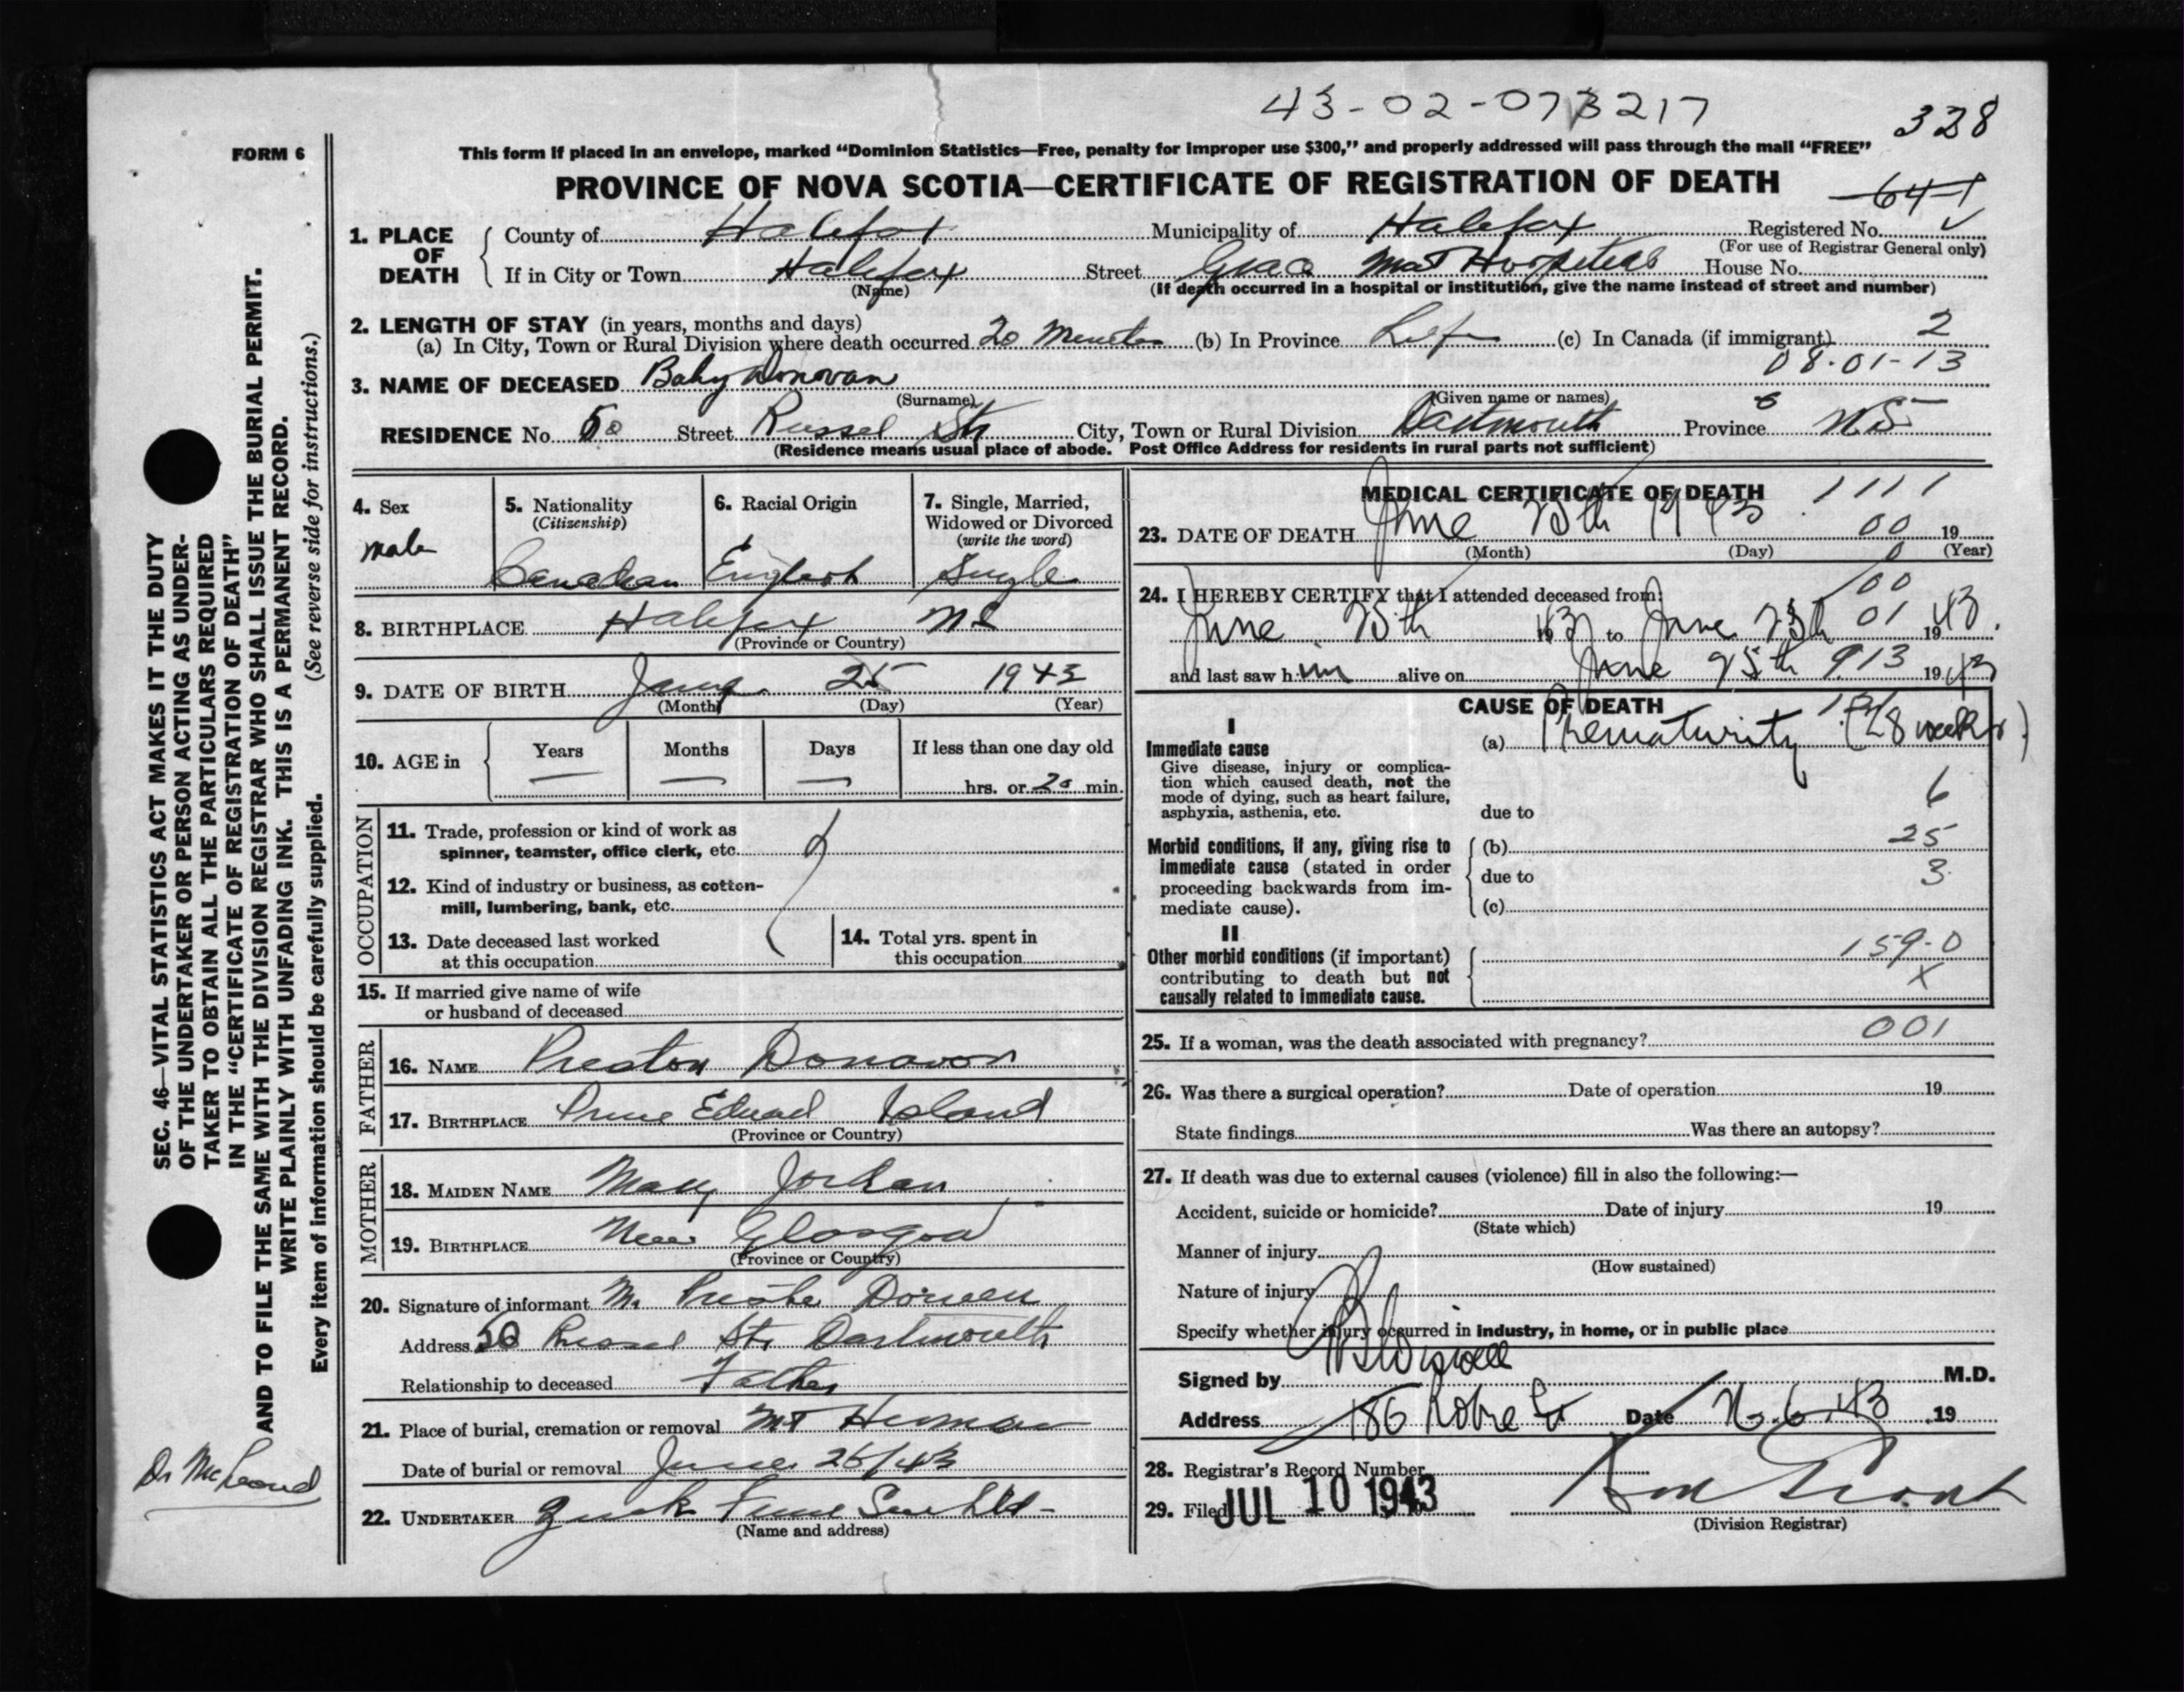 43-02-073217
328
FORM 6
This form if placed in an envelope, marked “Dominion Statistics—Free, penalty for improper use $300,” and properly addressed will pass through the mail “FREE”
PROVINCE OF NOVA SCOTIA—CERTIFICATE OF REGISTRATION OF DEATH
641
1. PLACE OF DEATH County of Halifax Municipality of Halifax Registered No.
(For use of Registrar General only)
If in City or Town Halifax Street Grace Mat Hospital House No.
(Name) (If death occurred in a hospital or institution, give the name instead of street and number)
2. LENGTH OF STAY (in years, months and days)
(a) In City, Town or Rural Division where death occurred 20 Minutes (b) In Province Life (c) In Canada (if immigrant) 2
08-01-13
3. NAME OF DECEASED Baby Donovan
(Surname) (Given name or names)
RESIDENCE No. 50 Street Russel Str City, Town or Rural Division Dartmouth Province N.S.
(Residence means usual place of abode. Post Office Address for residents in rural parts not sufficient)
4. Sex male
5. Nationality (Citizenship) Canadian
6. Racial Origin English
7. Single, Married, Widowed or Divorced (write the word) Single
8. BIRTHPLACE Halifax NS
(Province or Country)
9. DATE OF BIRTH June 25 1943
(Month) (Day) (Year)
10. AGE in Years — Months — Days — If less than one day old
hrs. or 20 min.
OCCUPATION
11. Trade, profession or kind of work as
spinner, teamster, office clerk, etc.
12. Kind of industry or business, as cotton-
mill, lumbering, bank, etc.
13. Date deceased last worked
at this occupation
14. Total yrs. spent in
this occupation
15. If married give name of wife
or husband of deceased
FATHER
16. NAME Preston Donavon
17. BIRTHPLACE Prince Edward Island
(Province or Country)
MOTHER
18. MAIDEN NAME Mary Jordan
19. BIRTHPLACE New Glasgow
(Province or Country)
20. Signature of informant M.
Address 50 Russel Str. Dartmouth
Relationship to deceased Father
21. Place of burial, cremation or removal Mt Herman
Date of burial or removal June 26/43
22. UNDERTAKER
(Name and address)
MEDICAL CERTIFICATE OF DEATH 1111
23. DATE OF DEATH June 25th 1943 00 19
(Month) (Day) (Year)
0
24. I HEREBY CERTIFY that I attended deceased from: 100
June 25th 1943 to June 25th 01 1943.
and last saw him alive on June 25th 913 1943
CAUSE OF DEATH
I
Immediate cause
Give disease, injury or complica-
tion which caused death, not the
mode of dying, such as heart failure,
asphyxia, asthenia, etc.
(a) Prematurity (28 weeks)
6
due to
Morbid conditions, if any, giving rise to
immediate cause (stated in order
proceeding backwards from im-
mediate cause).
(b) 25
due to 3
(c)
II
Other morbid conditions (if important)
contributing to death but not
causally related to immediate cause.
159-0
X
25. If a woman, was the death associated with pregnancy? 001
26. Was there a surgical operation? Date of operation 19
State findings Was there an autopsy?
27. If death was due to external causes (violence) fill in also the following:—
Accident, suicide or homicide? Date of injury 19
(State which)
Manner of injury
(How sustained)
Nature of injury
Specify whether injury occurred in industry, in home, or in public place
Signed by M.D.
Address 186 Date 19
28. Registrar's Record Number
29. Filed JUL 10 1943
(Division Registrar)
SEC. 46—VITAL STATISTICS ACT MAKES IT THE DUTY
OF THE UNDERTAKER OR PERSON ACTING AS UNDER-
TAKER TO OBTAIN ALL THE PARTICULARS REQUIRED
IN THE “CERTIFICATE OF REGISTRATION OF DEATH”
AND TO FILE THE SAME WITH THE DIVISION REGISTRAR WHO SHALL ISSUE THE BURIAL PERMIT.
WRITE PLAINLY WITH UNFADING INK. THIS IS A PERMANENT RECORD.
Every item of information should be carefully supplied. (See reverse side for instructions.)
Dr McLeod